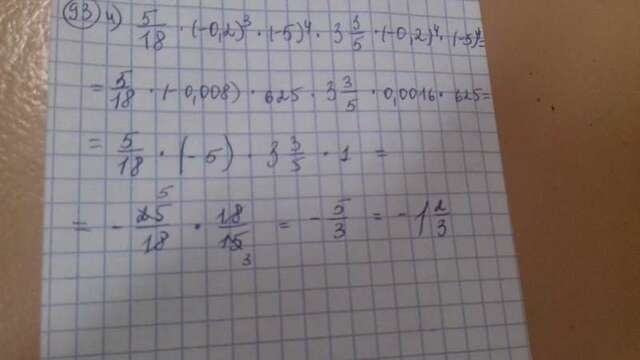 93 4) 5/18 · (-0,2)³ · (-5)⁴ · 3 3/5 · (-0,2)⁴ · (-5)⁴ =
= 5/18 · (-0,008) · 625 · 3 3/5 · 0,0016 · 625 =
= 5/18 · (-5) · 3 3/5 · 1 =
= - 25/18 · 18/15 = - 5/3 = -1 2/3
5
3